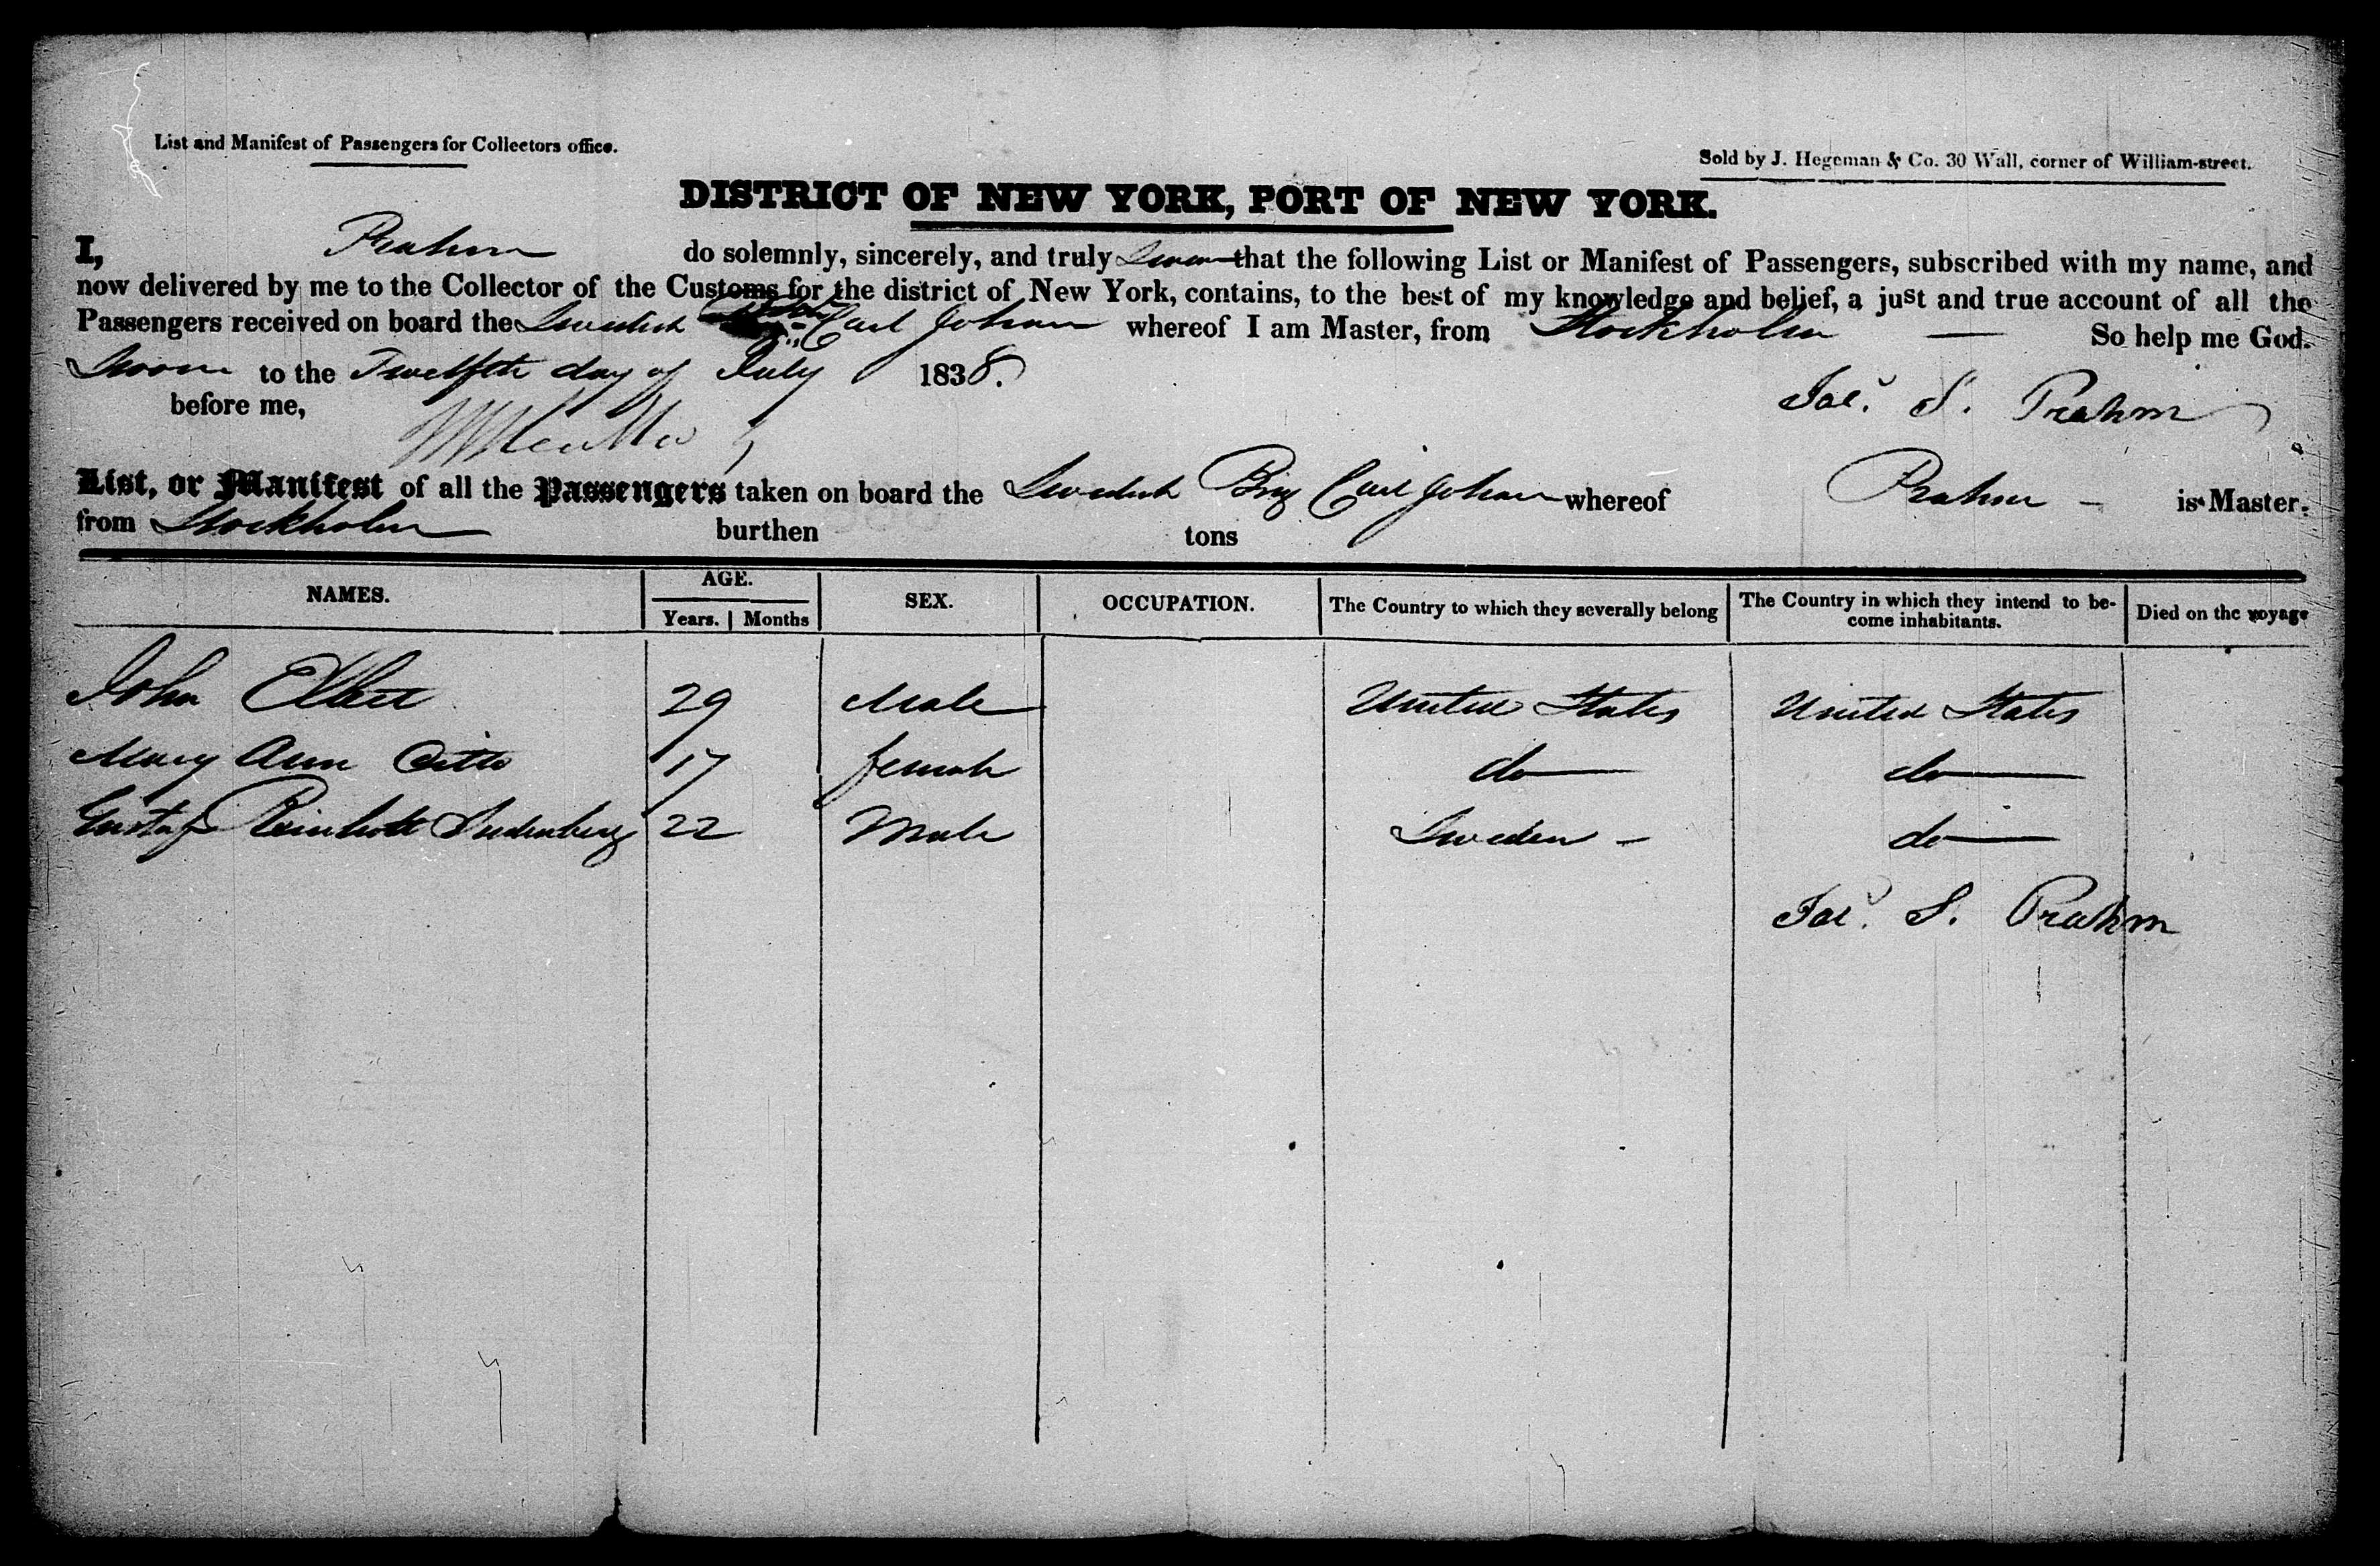 List and Manifest of Passengers for Collectors office.
Sold by J. Hegeman & Co. 30 Wall, corner of William-street.
DISTRICT OF NEW YORK, PORT OF NEW YORK.
I, Prahm do solemnly, sincerely, and truly swear that the following List or Manifest of Passengers, subscribed with my name, and
now delivered by me to the Collector of the Customs for the district of New York, contains, to the best of my knowledge and belief, a just and true account of all the
Passengers received on board the Swedish Carl Johan whereof I am Master, from Stockholm — So help me God.
Sworn to the Twelfth day of July 1838.
before me,
Jac. S. Prahm
List, or Manifest of all the Passengers taken on board the Swedish Brig Carl Johan whereof Prahm - is Master.
from Stockholm burthen tons
NAMES. AGE. SEX. OCCUPATION. The Country to which they severally belong The Country in which they intend to be-come inhabitants. Died on the voyage
Years. Months
John 29 Male United States United States
Mary Ann Ditto 17 female do do
Gustaf Reinholt 22 Male Sweden - do
Jac. S. Prahm